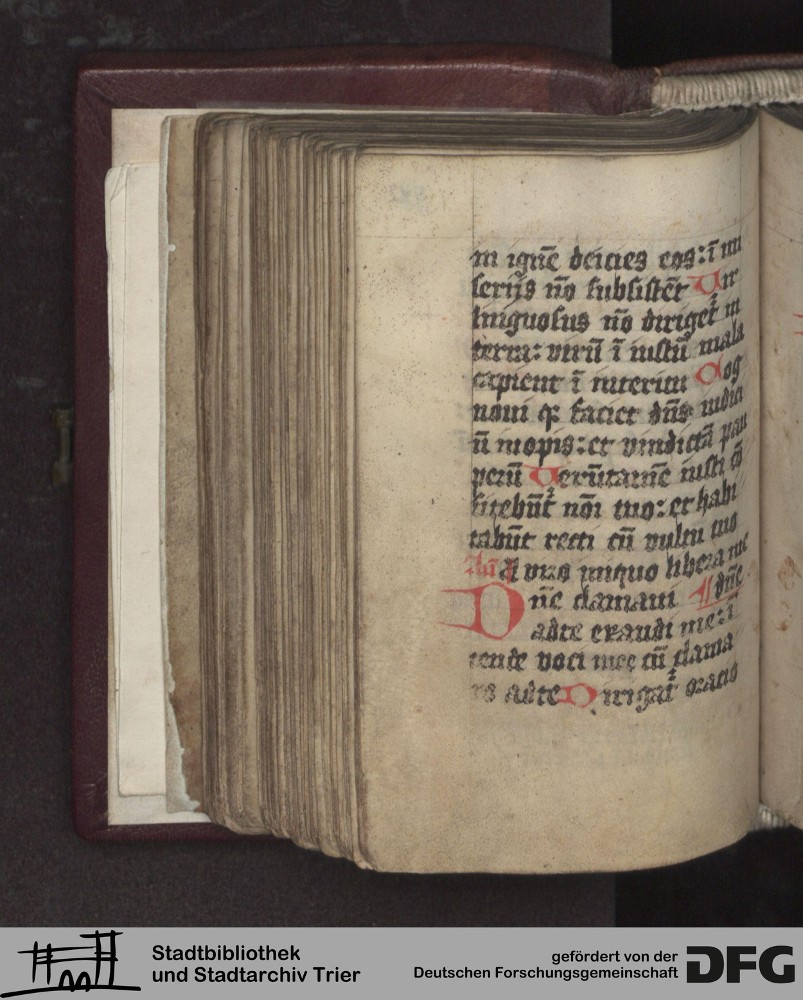 in ignē deicies eos: ī mi
serijs nō subsistēt Vir
linguosus nō dirigeť in
terra: virū ī iustū mala
capient ī interitu Cog
noui qꝫ faciet dn̄s iudici
ū inopis: et vindictā pau
perū Verūtamē iusti cō
fitebūť nōi tuo: et habi
tabūt recti cū vultu tuo
Añ A viro iniquo libera me
Dn̄e clamaui ¶ dn̄e
adte exaudi me: ī
tende voci mee cū clama
ro adte Dirigať oracio
Stadtbibliothek
und Stadtarchiv Trier
gefördert von der
Deutschen Forschungsgemeinschaft
DFG